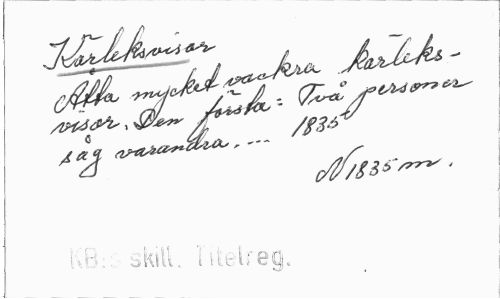 Kärleksvisor
Åtta mycket vackra kärleks-
visor. Den första: Två personer
såg varandra. ... 1835
N 1835 m.
KB:s skill. Titelreg.